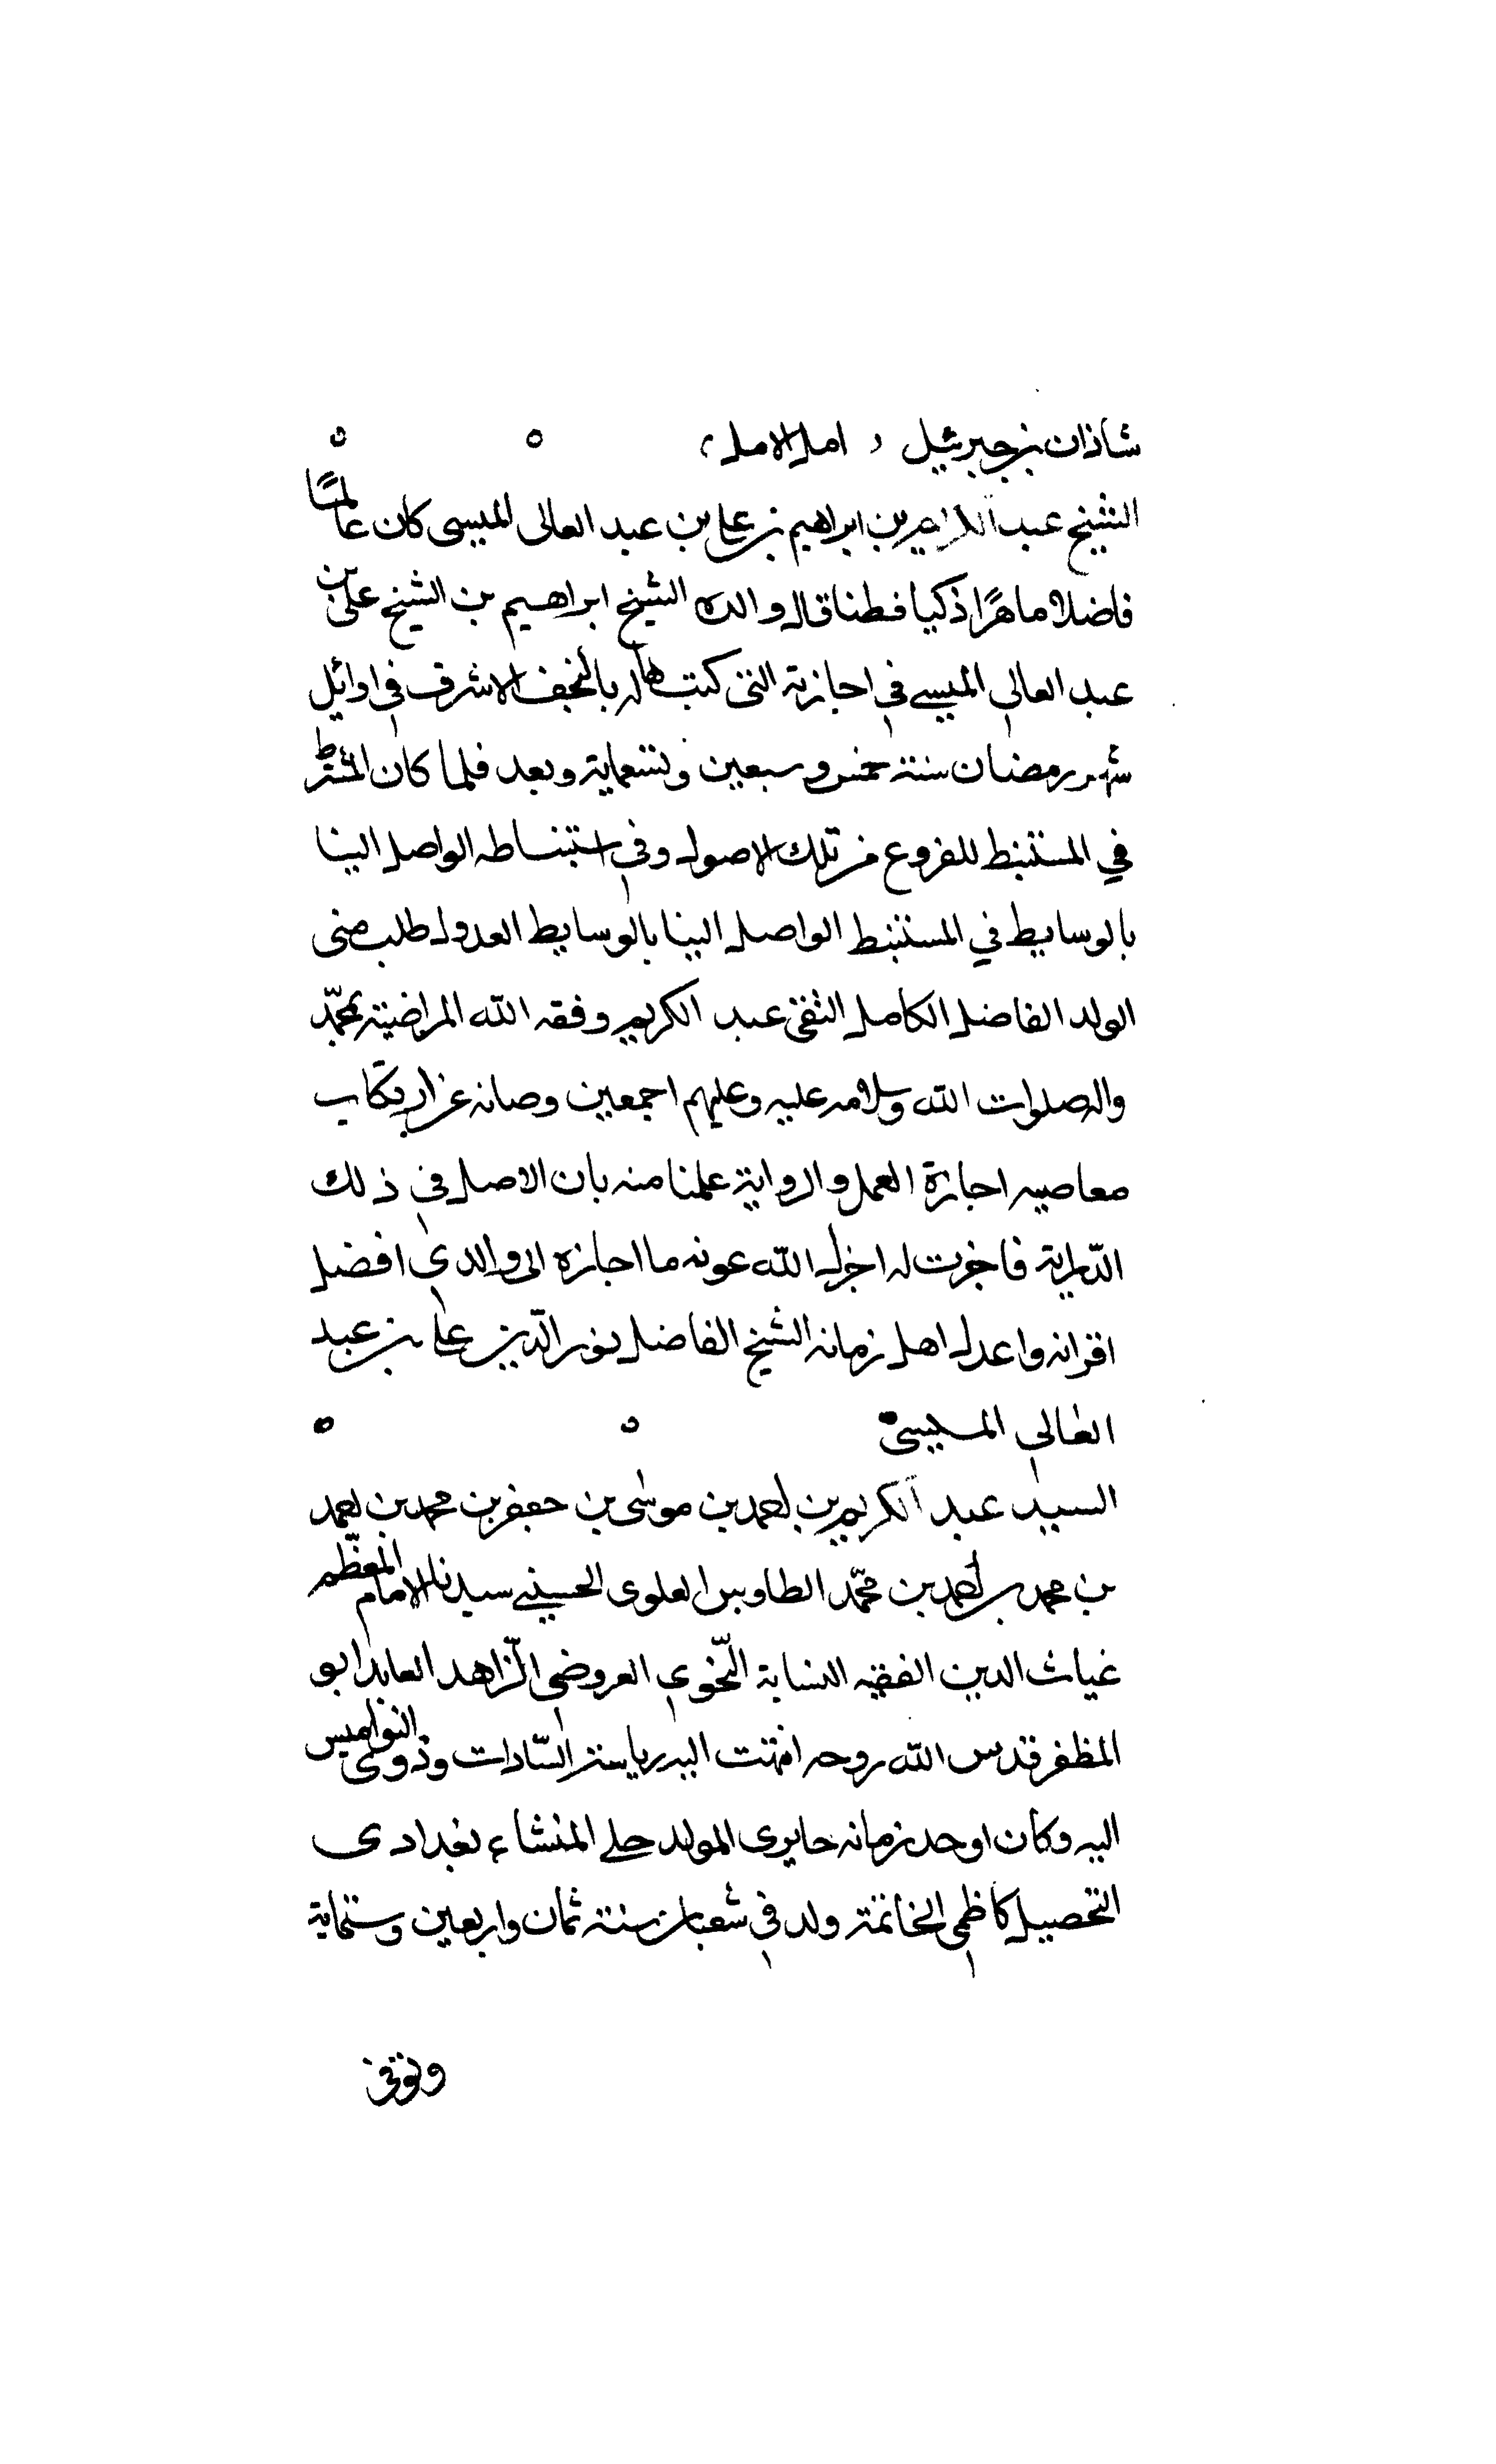 شاذان بن جبرئيل ( امل الامل )
الشيخ عبد الكريم بن ابراهيم بن علي بن عبد العالى الميسى كان عالمًا
فاضلا ماهرًا ذكيا فطنا قال والده الشيخ ابراهيم بن الشيخ على بن
عبد العالى الميسي في اجازته التى كتبها له بالنجف الاشرف في اوائل
شهر رمضان سنة خمس وسبعين وتسعماية وبعد فلما كان المشترط
في المستنبط للفروع من تلك الاصول وفي استنباطه الواصل الينا
بالوسايط في المستنبط الواصل الينا بالوسايط العدول طلب منى
الولد الفاضل الكامل التقى عبد الكريم وفقه الله المراضيته بمحمّد
واله صلوات الله وسلامه عليه وعليهم اجمعين وصانه عن ارتكاب
معاصيه اجازة العمل والرواية علمنا منه بان الاصل في ذلك
الدّراية فاجزت له اجزل الله عونه ما اجازه الى والدى افضل
اقرانه واعدل اهل زمانه الشيخ الفاضل نور الدّين على بن عبد
العالى الميسى
السيد عبد الكريم بن احمد بن موسى بن جعفر بن محمد بن احمد
بن محمد بن احمد بن محمّد الطاوس العلوى الحسينى سيدنا الامام المعظّم
غياث الدين الفقيه النسابة النّحوى العروضى الزّاهد العابد ابو
المظفر قدس الله روحه انتهت اليه رياسة السّادات وذوى النواميس
اليه وكان اوحد زمانه حايرى المولد حلى المنشاء بغدادى
التحصيل كاظمى الخاتمة ولد في شعبان سنة ثمان واربعين وستماية
وتوفى